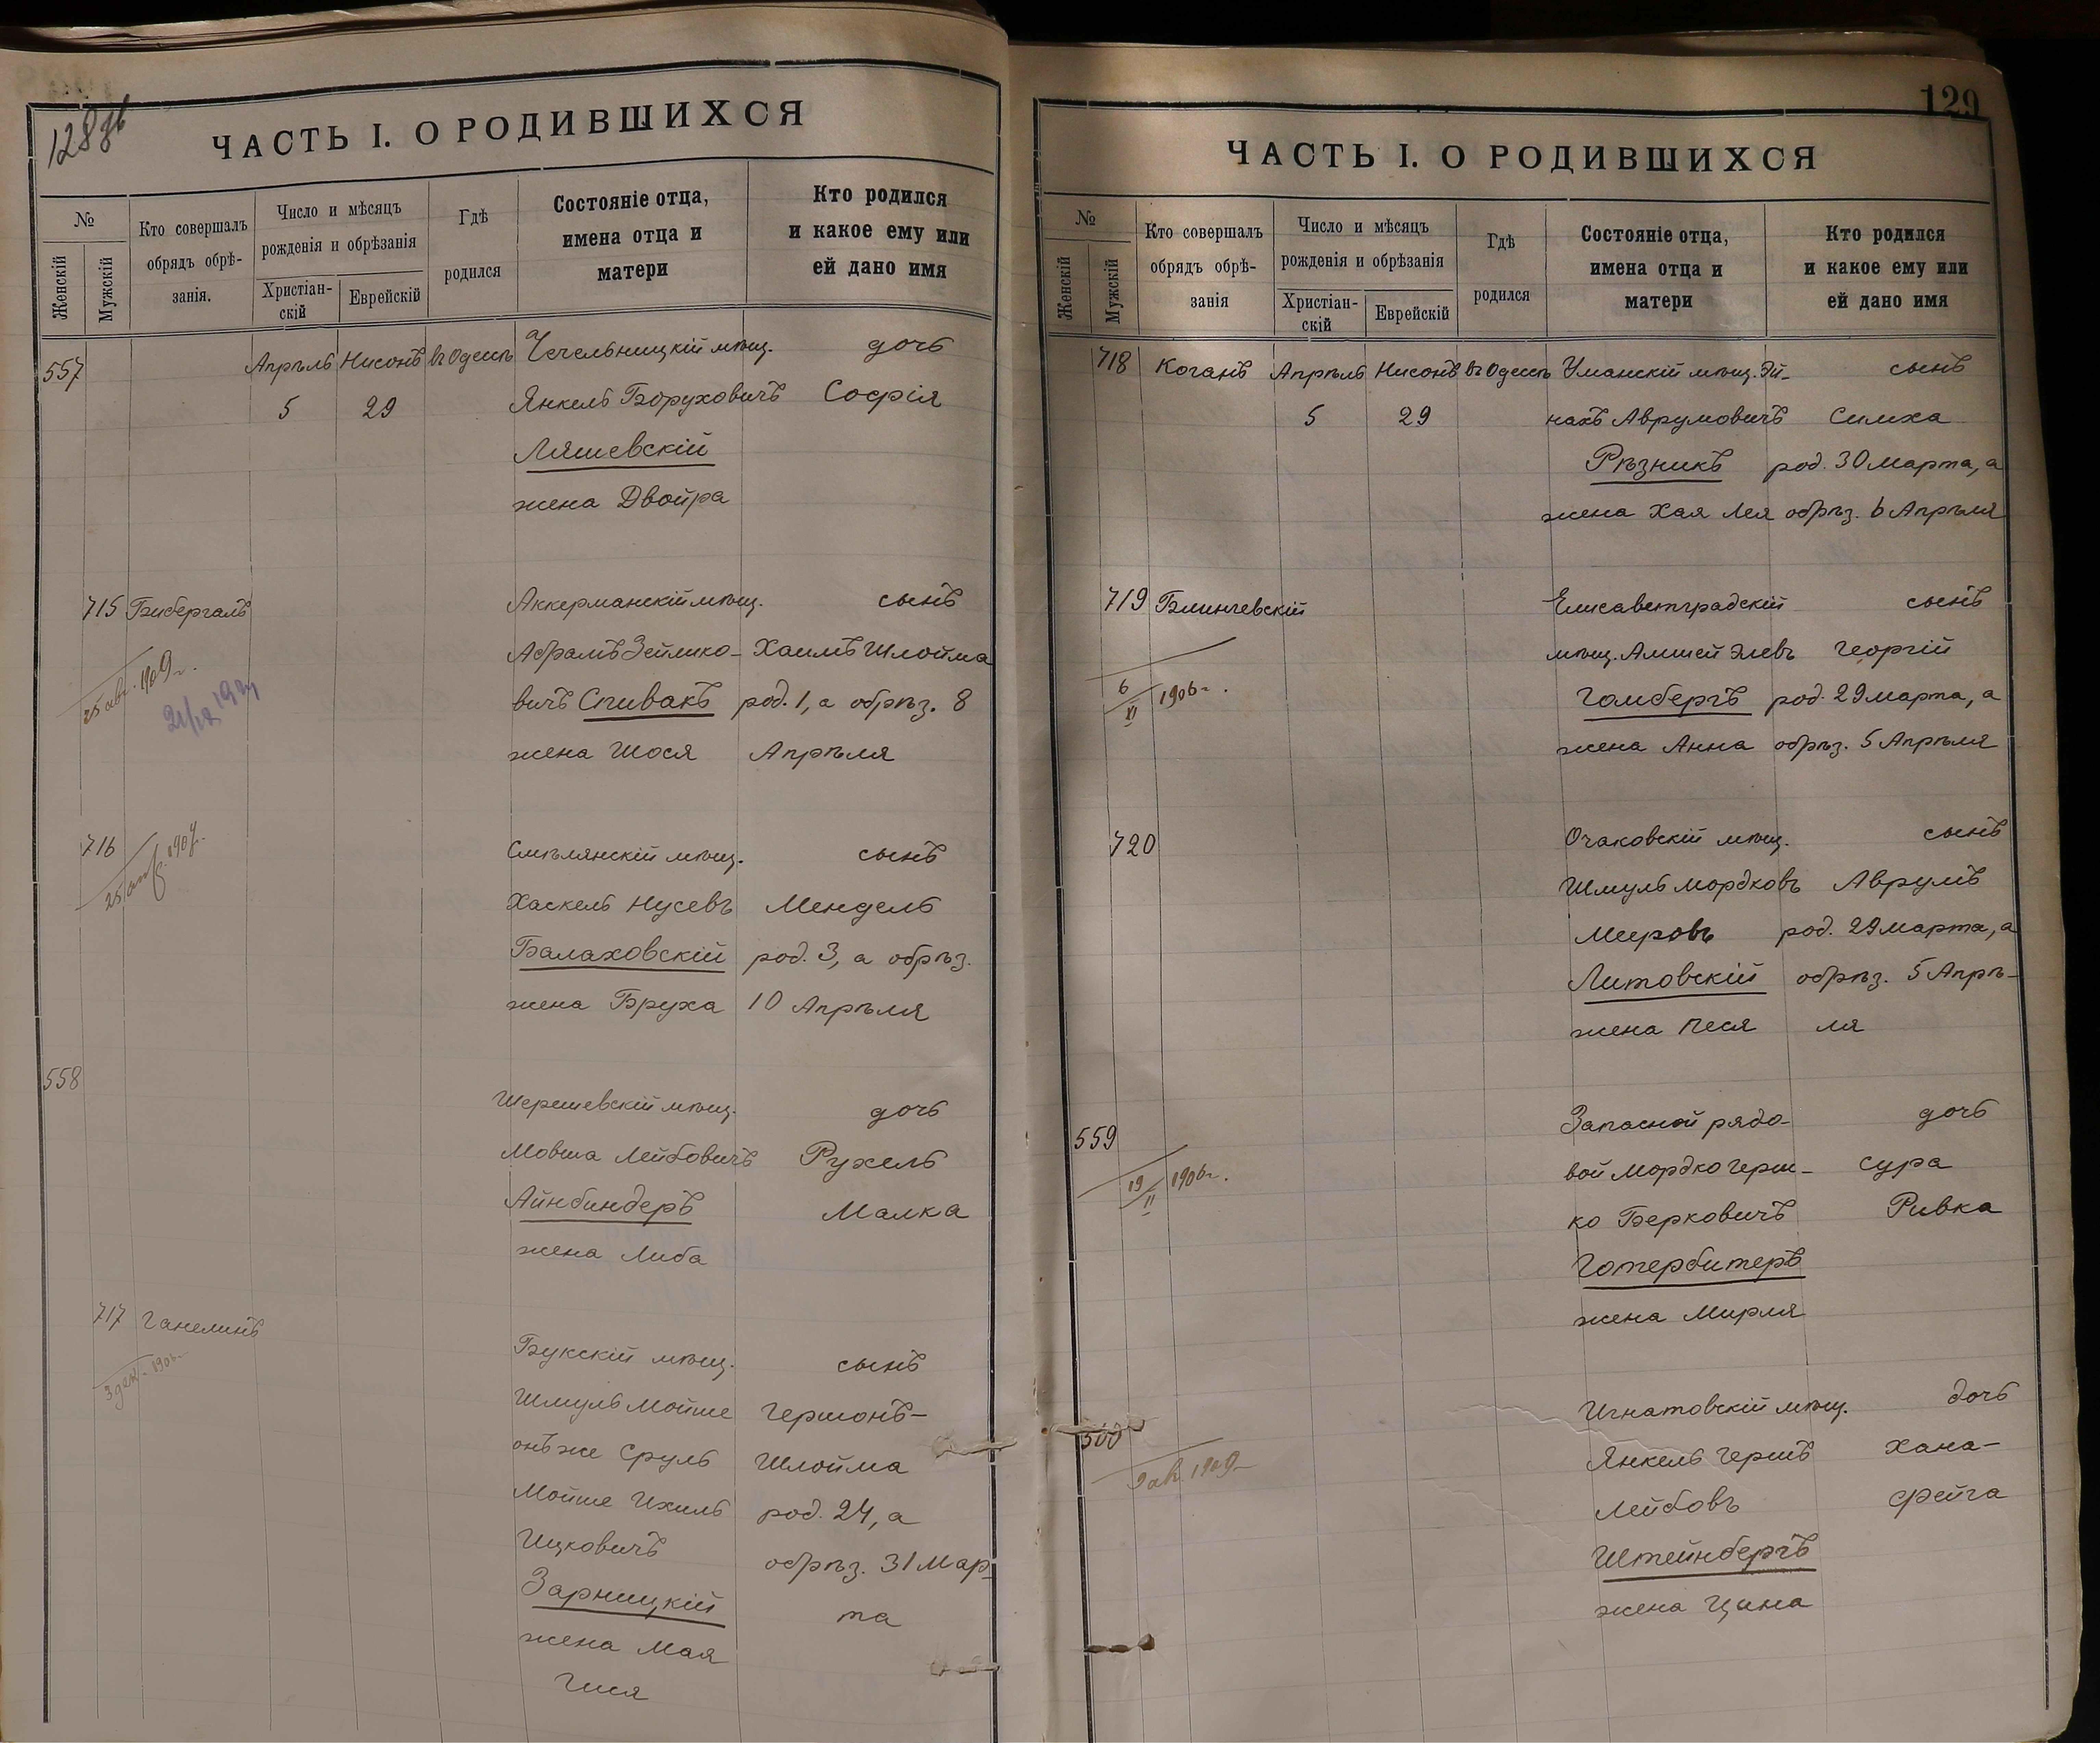 128об
ЧАСТЬ I. О РОДИВШИХСЯ
№
Женскій
Мужскій
Кто совершалъ
обрядъ обрѣ-
занія.
Число и мѣсяцъ
рожденія и обрѣзанія
Христіан-
скій
Еврейскій
Гдѣ
родился
Состояніе отца,
имена отца и
матери
Кто родился
и какое ему или
ей дано имя
557 Апрѣль Нисонъ въ Одессѣ Чечельницкій мѣщ. дочь
5 29 Янкель Боруховичъ Софія
Ляшевскій
жена Двойра
715 Бибергалъ Аккерманскій мѣщ. сынъ
25 авг. 1909 г. Абрамъ Зейлико- Хаимъ Шлойма
вичъ Спивакъ род. 1, а обрѣз. 8
жена Шося Апрѣля
716 Смѣлянскій мѣщ. сынъ
Хаскель Нусевъ Мендель
Балаховскій род. 3, а обрѣз.
жена Бруха 10 Апрѣля
558
Шерешевскій мѣщ. дочь
Мовша Лейбовичъ Рухель
Айнбиндеръ Малка
жена Либа
717 Ганелинъ
Букскій мѣщ. сынъ
Шмуль Мойше Гершонъ-
онъ же Сруль Шлойма
Мойше Ихиль род. 24, а
Ицковичъ обрѣз. 31 Мар-
Зарницкій та
жена Мая
Гися
129
ЧАСТЬ I. О РОДИВШИХСЯ
№
Женскій
Мужскій
Кто совершалъ
обрядъ обрѣ-
занія
Число и мѣсяцъ
рожденія и обрѣзанія
Христіан-
скій
Еврейскій
Гдѣ
родился
Состояніе отца,
имена отца и
матери
Кто родился
и какое ему или
ей дано имя
718 Коганъ Апрѣль Нисонъ въ Одессѣ Уманскій мѣщ. Эй- сынъ
5 29 нахъ Аврумовичъ Симха
Рѣзникъ род. 30 Марта, а
жена Хая Лея обрѣз. 6 Апрѣля
719 Блинчевскій Елисаветградскій сынъ
мѣщ. Амшей Элевъ Георгій
6/XI 1906 г. Гомбергъ род. 29 Марта, а
жена Анна обрѣз. 5 Апрѣля
720 Очаковскій мѣщ. сынъ
Шмуль Мордковъ Аврумъ
Мееровъ род. 29 Марта, а
Литовскій обрѣз. 5 Апрѣ-
жена Песя ля
559 Запасной рядо- дочь
19/II 1906 г. вой Мордко Герш- Сура
ко Берковичъ Ривка
Готербитеръ
жена Мирля
560 Игнатовскій мѣщ. дочь
Янкель Гершъ Хана-
Лейбовъ Фейга
Штейнбергъ
жена Цина